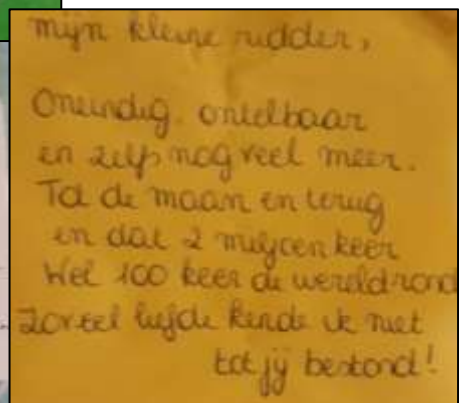 mijn kleine ridder,
Oneindig, ontelbaar
en zelfs nog veel meer.
Tot de maan en terug
en dat 2 miljoen keer
Wel 100 keer de wereld rond
Zoveel liefde kende ik niet
tot jij bestond!